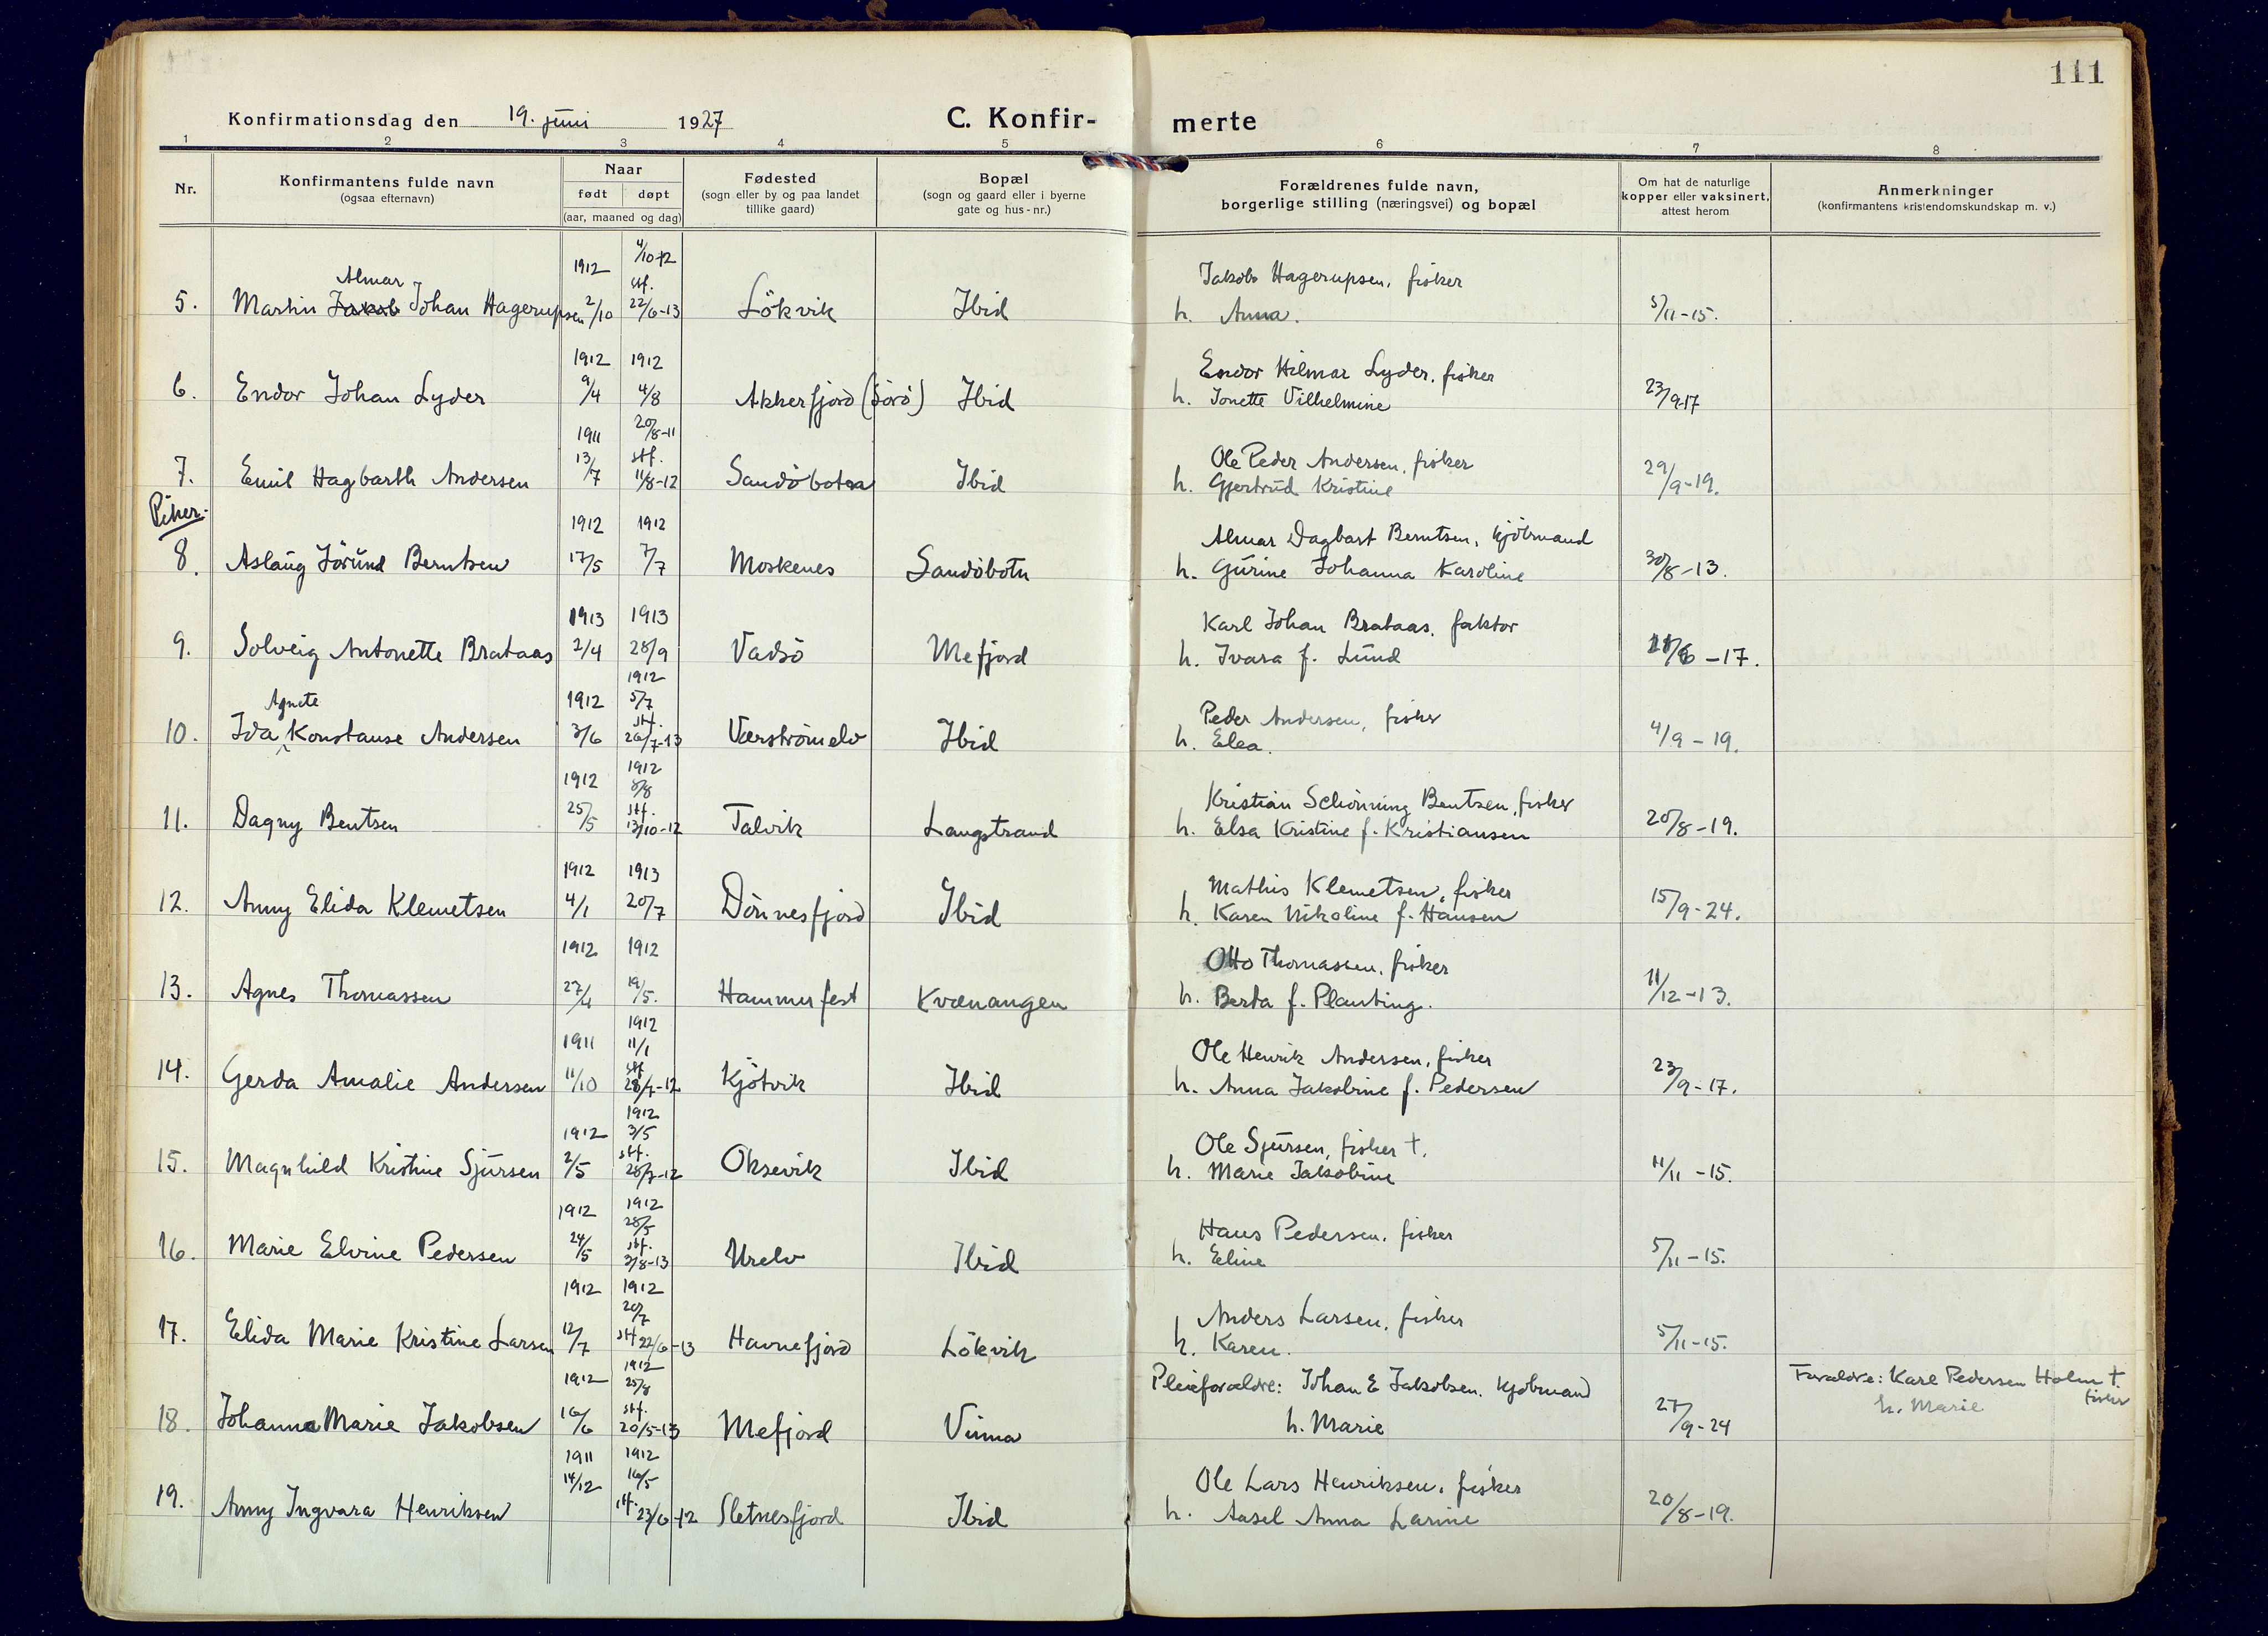 111
Konfirmationsdag den 19. juni 1927
C. Konfir-
merte
1 2 3 4 5 6 7 8
Nr.
Konfirmantens fulde navn
(ogsaa efternavn)
Naar
født døpt
(aar, maaned og dag)
Fødested
(sogn eller by og paa landet
tillike gaard)
Bopæl
(sogn og gaard eller i byerne
gate og hus-nr.)
Forældrenes fulde navn,
borgerlige stilling (næringsvei) og bopæl
Om hat de naturlige
kopper eller vaksinert,
attest herom
Anmerkninger
(konfirmantens kristendomskundskap m. v.)
1912 4/10-12
Almar stf. Jakob Hagerupsen, fisker
5. Martin Jakob Johan Hagerupsen 2/10 22/6-13 Lökvik Ibid h. Anna. 5/11-15.
1912 1912 Endor Hilmar Lyder, fisker
6. Endor Johan Lyder 9/4 4/8 Akkerfjord (Sörö) Ibid h. Jonette Vilhelmine 23/9-17
1911 20/8-11
stf. Ole Peder Andersen, fisker
7. Emil Hagbarth Andersen 13/7 11/8-12 Sandöbotn Ibid h. Gjertrud Kristine 29/9-19.
Piker:
1912 1912 Almar Dagbart Berntsen, kjöbmand
8. Aslaug Jörund Berntsen 17/5 7/7 Moskenes Sandöbotn h. Gurine Johanna Karoline 30/8-13.
1913 1913 Karl Johan Brataas, faktor
9. Solveig Antonette Brataas 2/4 28/9 Vadsö Mefjord h. Ivara f. Lund /6-17.
1912
Agnete 1912 5/7
stf. Peder Andersen, fisker
10. Ida Konstanse Andersen 3/6 26/7-13 Værströmelv Ibid h. Elea. 4/9-19.
1912 1912
8/8
stf. Kristian Schönning Bentzen, fisker
11. Dagny Bentsen 25/5 13/10-12 Talvik Langstrand h. Elsa Kristine f. Kristiansen 20/8-19.
1912 1913 Mathis Klemetsen, fisker
12. Anny Elida Klemetsen 4/1 20/7 Dönnesfjord Ibid h. Karen Nikoline f. Hansen 15/9-24.
1912 1912 Otto Thomassen, fisker
13. Agnes Thomassen 27/4 19/5. Hammerfest Kvænangen h. Berta f. Planting. 11/12-13.
1912
1911 11/1
stf Ole Henrik Andersen, fisker
14. Gerda Amalie Andersen 11/10 28/7-12 Kjötvik Ibid h. Anna Jakobine f. Pedersen 23/9-17.
1912
1912 3/5
stf. Ole Sjursen, fisker †.
15. Magnhild Kristine Sjursen 2/5 28/7-12 Oksevik Ibid h. Marie Jakobine 11/11-15.
1912 1912
28/5
stf. Hans Pedersen, fisker
16. Marie Elvine Pedersen 24/5 3/8-13 Urelv Ibid h. Eline 5/11-15.
1912 1912
20/7 Anders Larsen, fisker
17. Elida Marie Kristine Larsen 12/7 stf 22/6-13 Havnefjord Lökvik h. Karen. 5/11-15.
1912
1912 25/8 Pleieforældre: Johan E Jakobsen. kjöbmand Forældre: Karl Pedersen Holm †.
stf. fisker
18. Johanna Marie Jakobsen 16/6 20/5-13 Mefjord Vinna h. Marie 27/9-24 h. Marie
1911 1912
14/12 16/5 Ole Lars Henriksen, fisker
19. Anny Ingvara Henriksen stf. 23/6-12 Sletnesfjord Ibid h. Aasel Anna Larine 20/8-19.